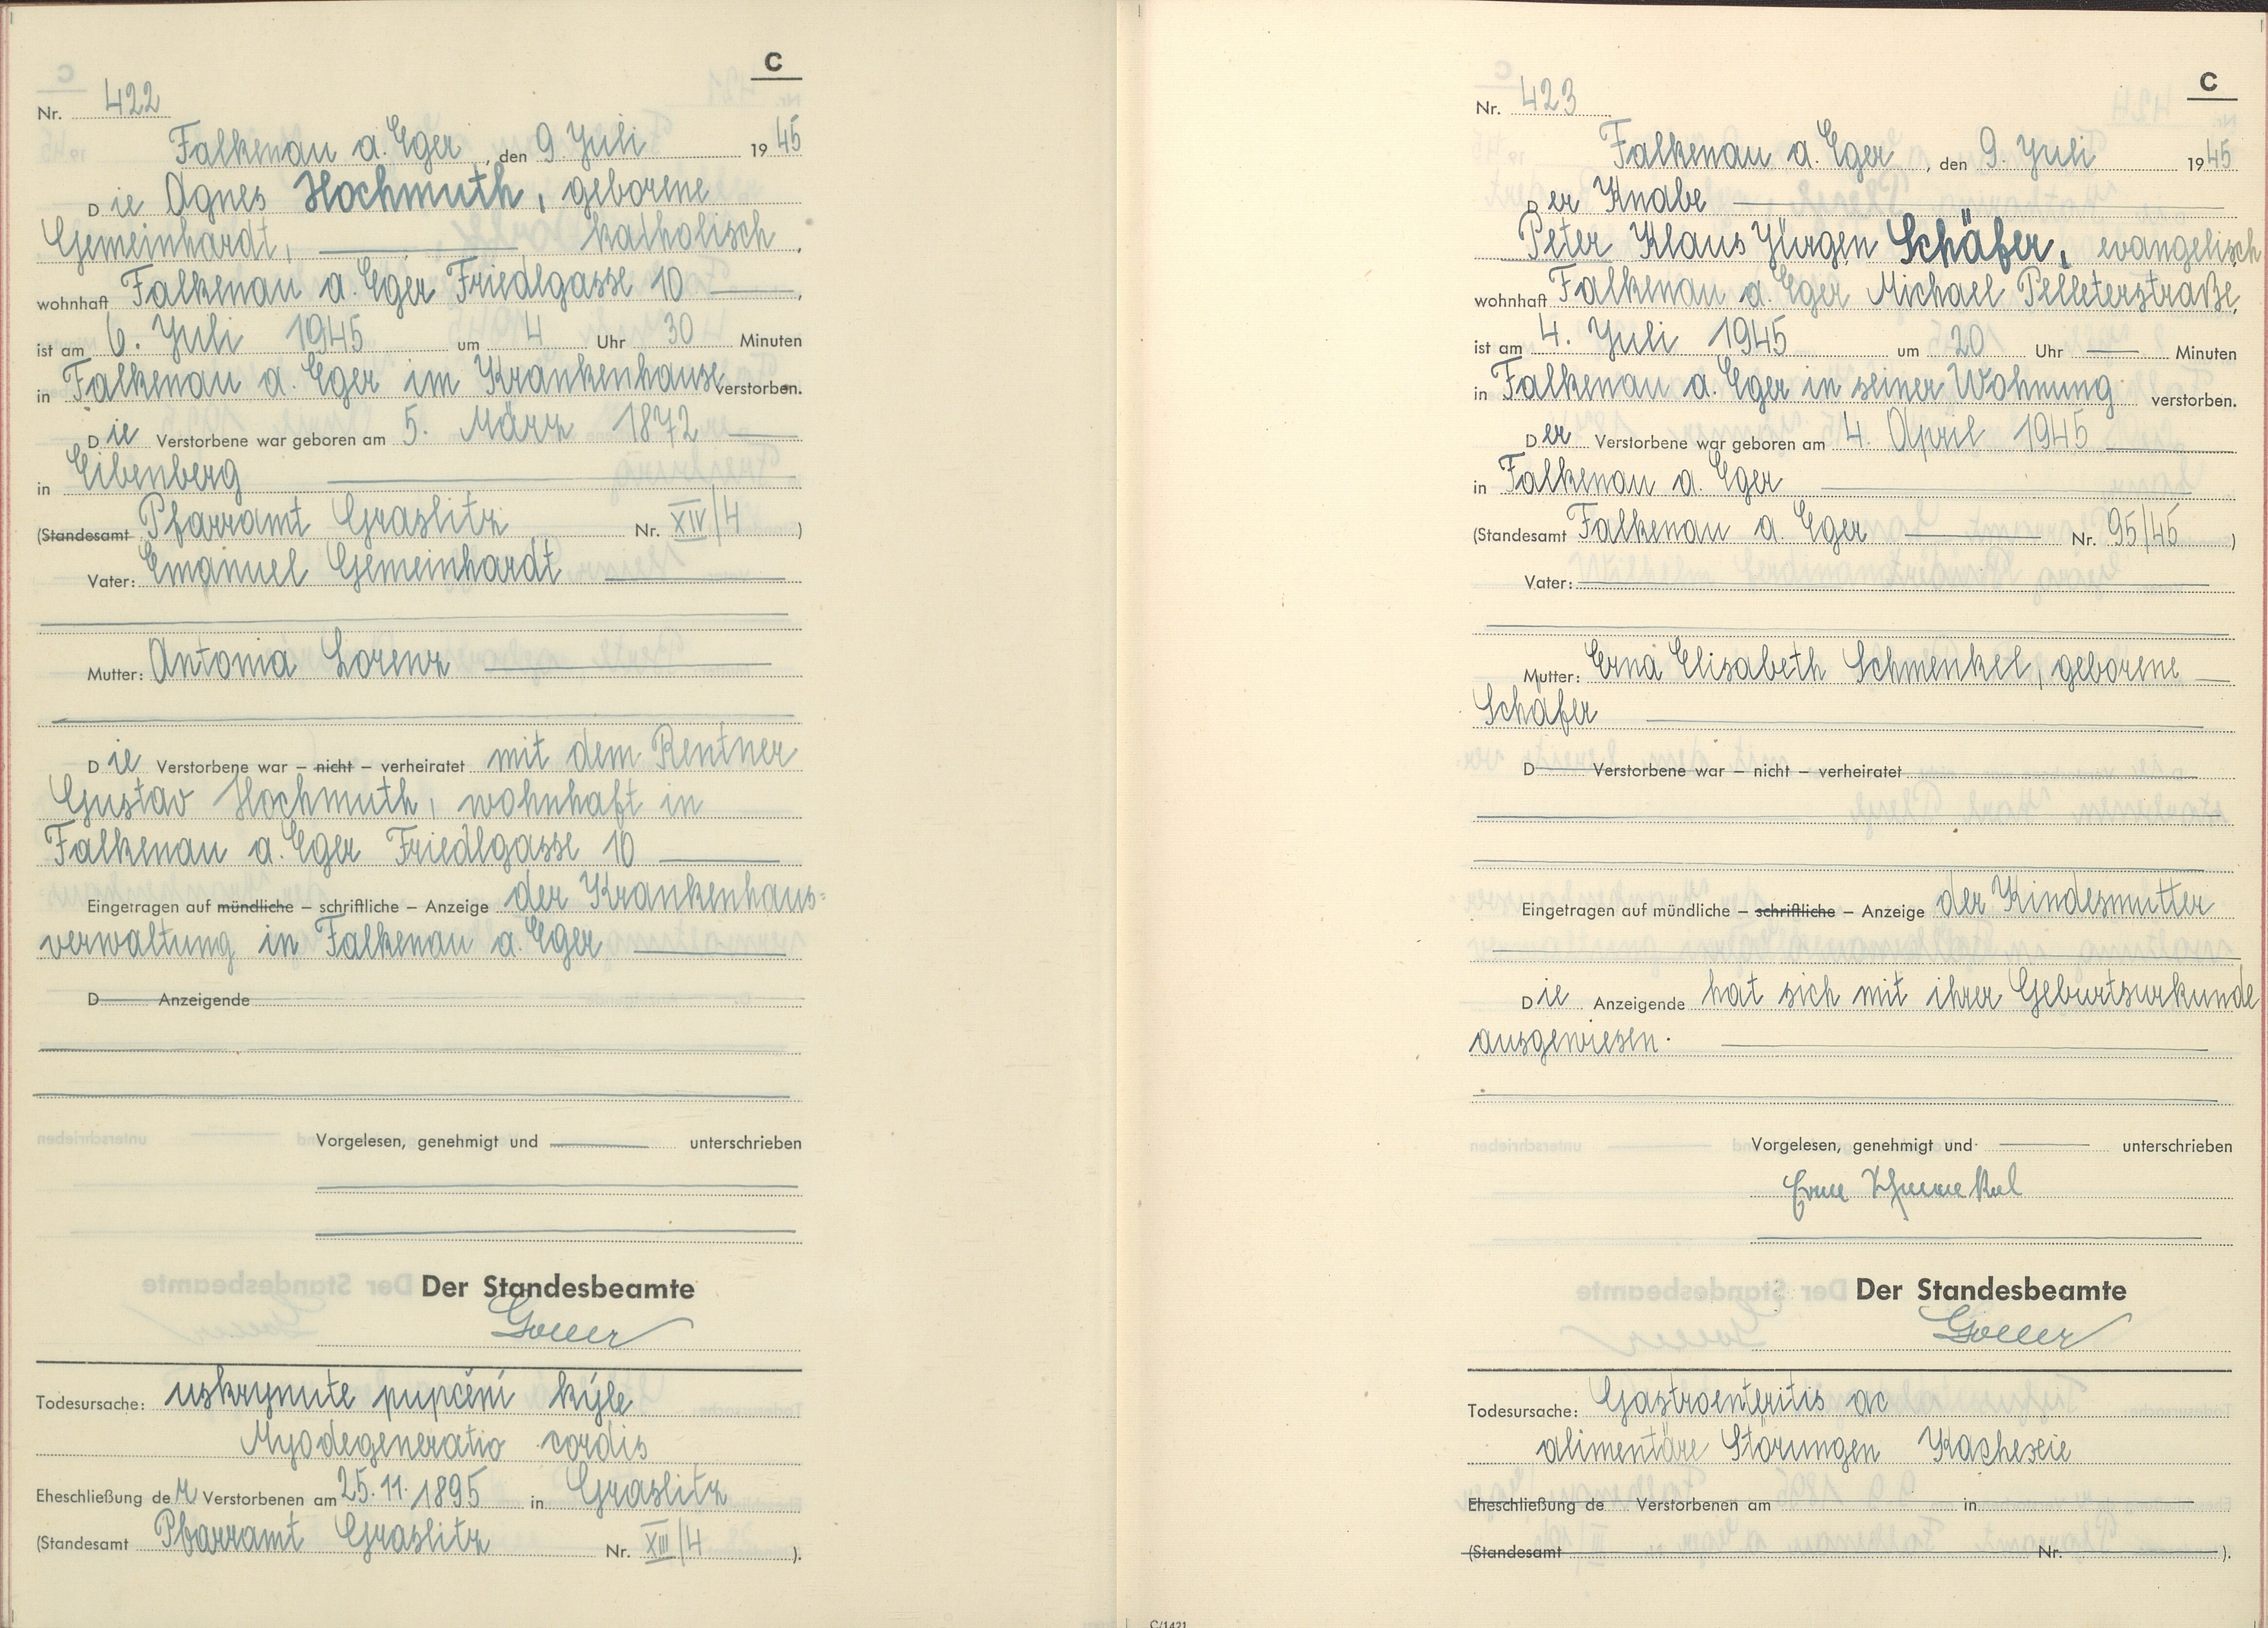 C
Nr. 422
Falkenau a. Eger, den 9. Juli 1945
Die Agnes Hochmuth, geborene
Gemeinhardt, katholisch,
wohnhaft Falkenau a. Eger Friedlgasse 10,
ist am 6. Juli 1945 um 4 Uhr 30 Minuten
in Falkenau a. Eger im Krankenhause verstorben.
Die Verstorbene war geboren am 5. März 1872
in Eibenberg
(Standesamt Pfarramt Graslitz Nr. XIV/4)
Vater: Emanuel Gemeinhardt
Mutter: Antonia Lorenz
Die Verstorbene war – nicht – verheiratet mit dem Rentner
Gustav Hochmuth, wohnhaft in
Falkenau a. Eger Friedlgasse 10
Eingetragen auf mündliche – schriftliche – Anzeige der Krankenhaus=
verwaltung in Falkenau a. Eger
D Anzeigende
Vorgelesen, genehmigt und unterschrieben
Der Standesbeamte
Goller
Todesursache: uskrynute pupcéní kýle
Myodegeneratio cordis
Eheschließung der Verstorbenen am 25.11.1895 in Graslitz
(Standesamt Pfarramt Graslitz Nr. XIII/4).
C
Nr. 423
Falkenau a. Eger, den 9. Juli 1945
Der Knabe
Peter Klaus Jürgen Schäfer, evangelisch
wohnhaft Falkenau a. Eger Michael Pelleterstraße,
ist am 4. Juli 1945 um 20 Uhr Minuten
in Falkenau a. Eger in seiner Wohnung verstorben.
Der Verstorbene war geboren am 4. April 1945
in Falkenau a. Eger
(Standesamt Falkenau a. Eger Nr. 95/45)
Vater:
Mutter: Erna Elisabeth Schmenkel, geborene
Schäfer
D Verstorbene war – nicht – verheiratet
Eingetragen auf mündliche – schriftliche – Anzeige der Kindesmutter
Die Anzeigende hat sich mit ihrer Geburtsurkunde
ausgewiesen.
Vorgelesen, genehmigt und unterschrieben
Erna Schmenkel
Der Standesbeamte
Goller
Todesursache: Gastroenteritis ac
alimentäre Störungen Kachexie
Eheschließung de Verstorbenen am in
(Standesamt Nr. ).
C/1421